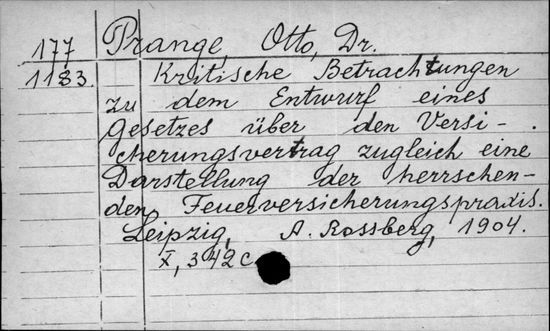 177 Prange, Otto, Dr.
1183. Kritische Betrachtungen
zu dem Entwurf eines
Gesetzes über den Versi-
cherungsvertrag zugleich eine
Darstellung der herrschen-
den Feuerversicherungspraxis.
Leipzig, A. Rossberg, 1904.
X, 342 c